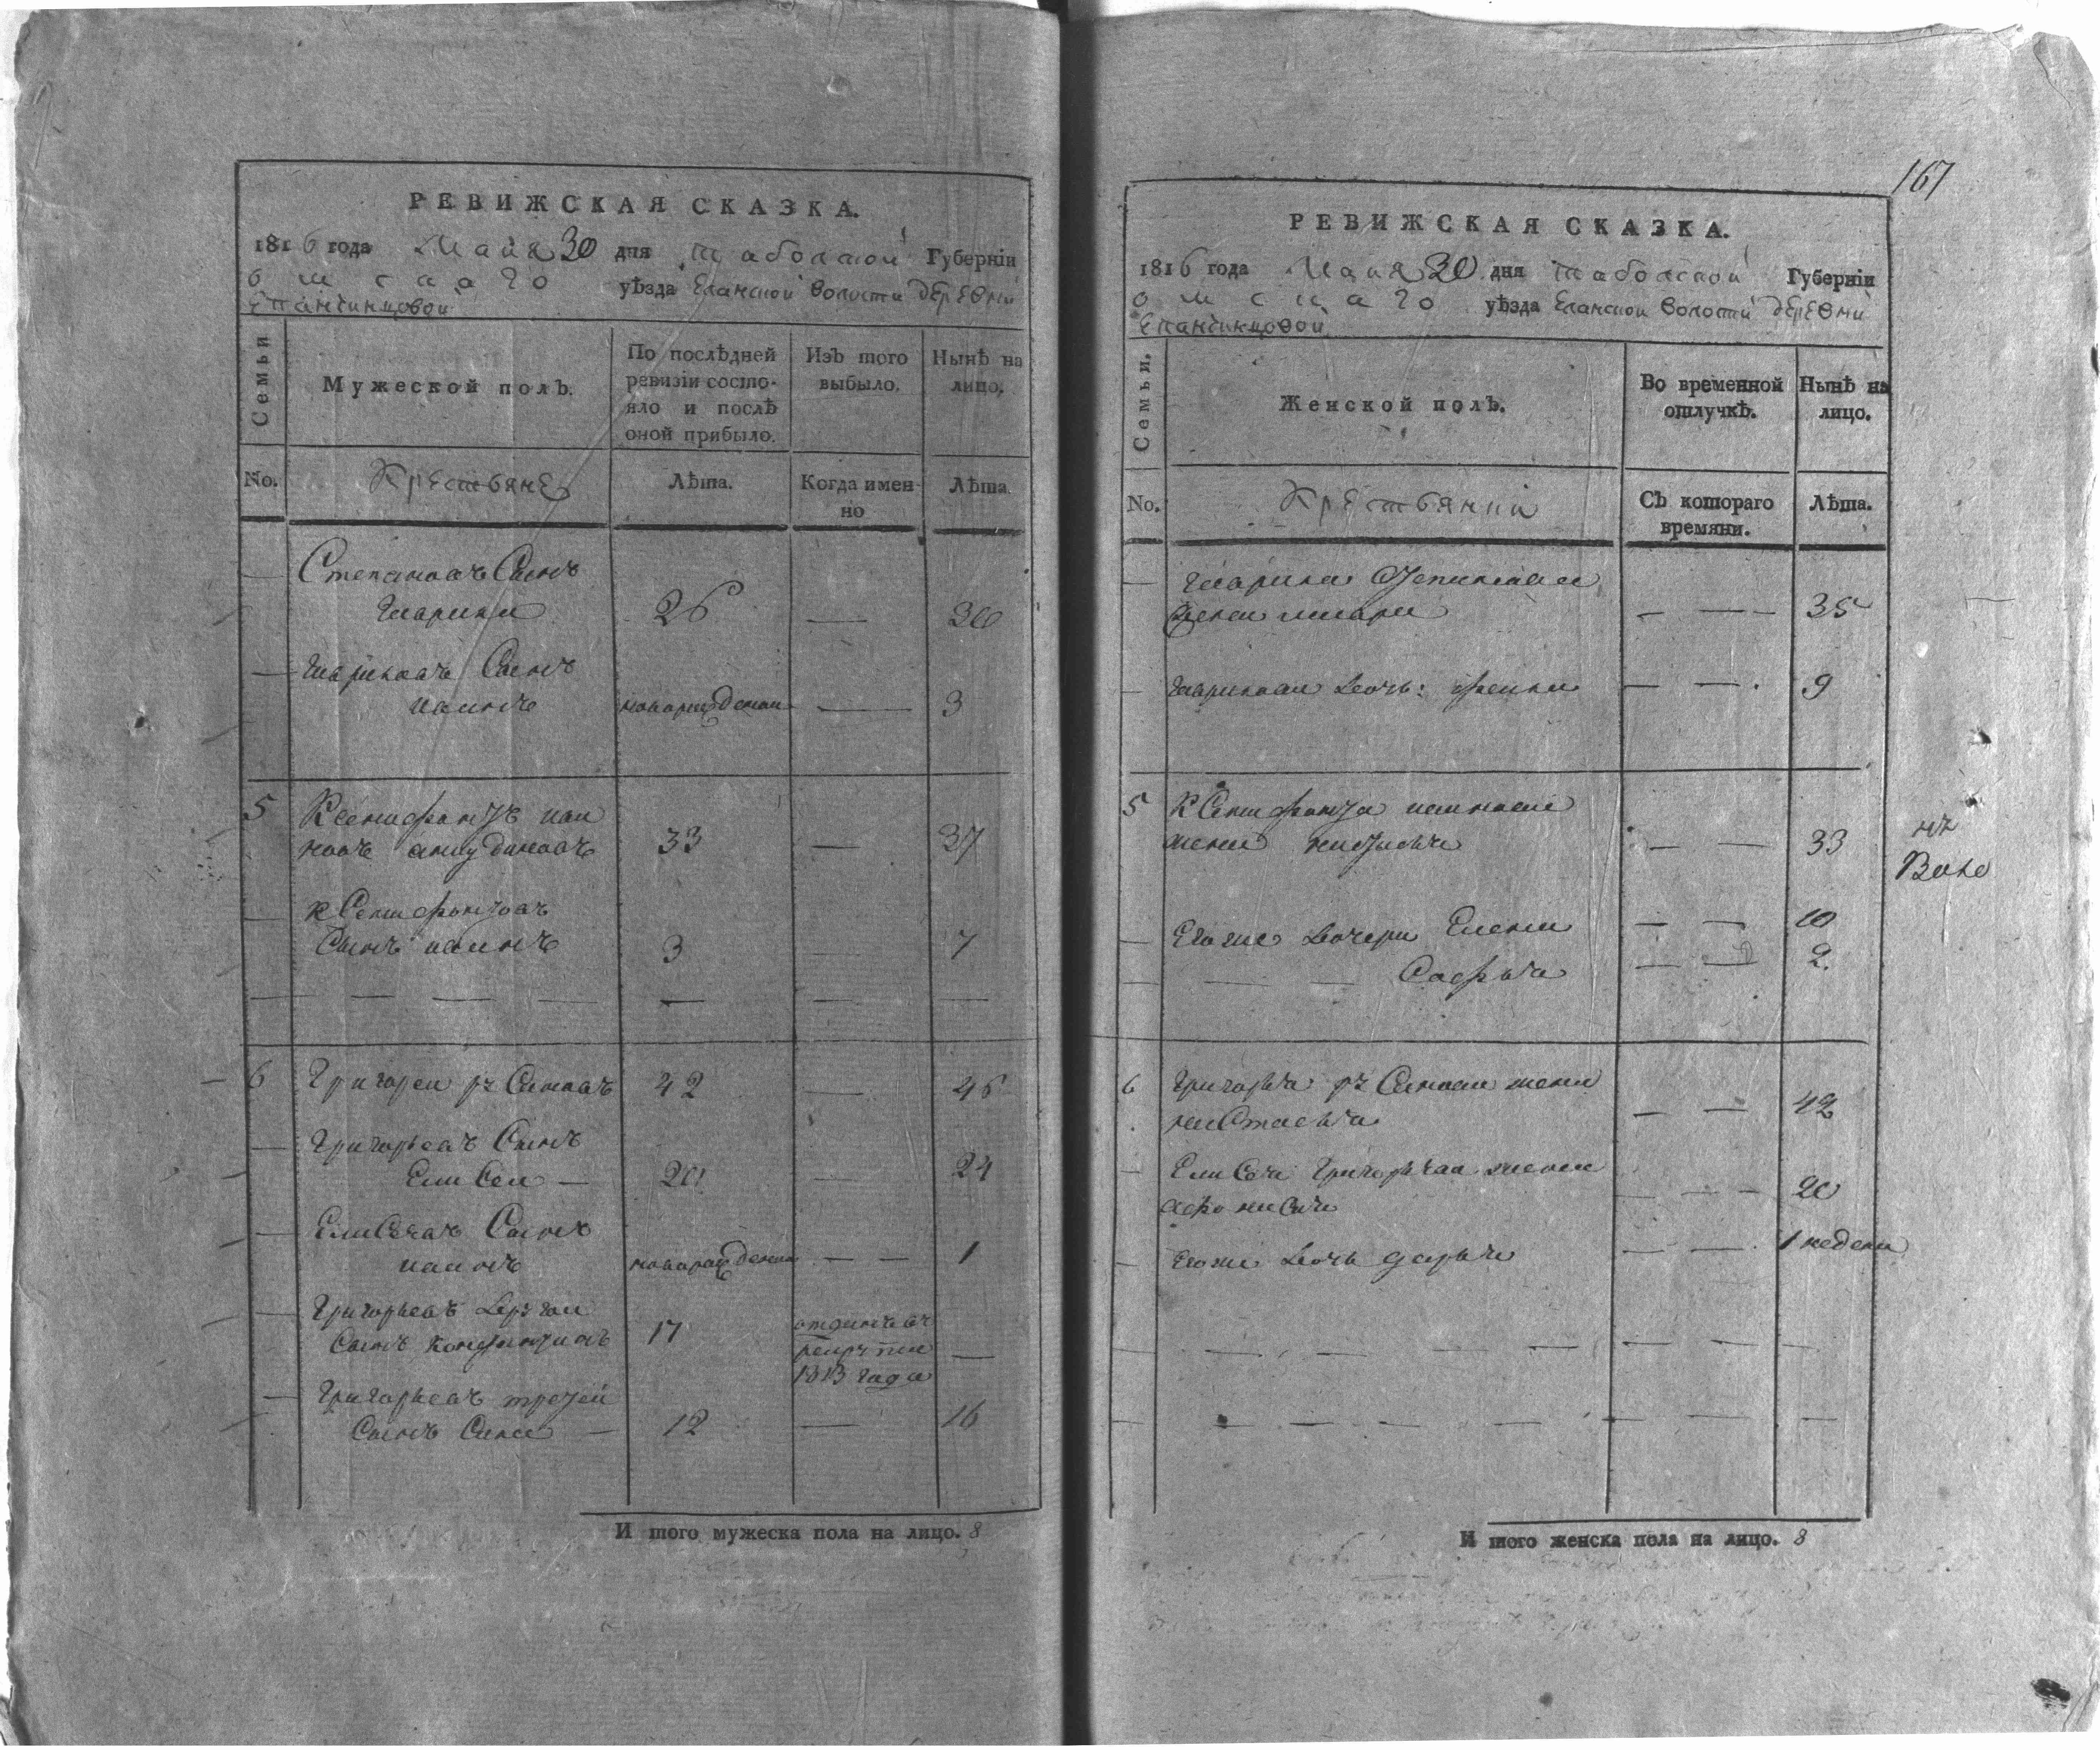 РЕВИЖСКАЯ СКАЗКА.
1816 года Майя 30 дня таболской Губерніи
омскаго уѣзда Еланской волости деревни
Епанчинцовой
Семьи
Мужеской полъ.
По послѣдней ревизіи состояло и послѣ оной прибыло.
Изъ того выбыло.
Нынѣ на лицо.
No.
Крестьяне
Лѣта.
Когда именно
Лѣта.
Степановъ Сынъ
Марки 26 — 30
Сынъ
иванъ новорожденъ — 3
5 Ксенофонтъ ива
новъ анкудиновъ 33 — 37
Ксенофонтовъ
Сынъ иванъ 3 — 7
6 Григореи 42 — 46
Григорьевъ Сынъ
Елисеи — 20 — 24
Елисеевъ Сынъ
иванъ новорожденъ — — 1
Григорьевъ другои
Сынъ 17 отданъ въ рекруты 1813 года —
Григорьевъ третей
Сынъ — 12 — 16
И того мужеска пола на лицо. 8
167
РЕВИЖСКАЯ СКАЗКА.
1816 года Майя 30 дня таболской Губерніи
омскаго уѣзда Еланской волости деревни
Епанчинцовой
Семьи.
Женской полъ.
Во временной отлучкѣ.
Нынѣ на лицо.
No.
Крестьянки
Съ котораго времяни.
Лѣта.
Степанова
жена — — 35
дочь — — 9
5 Ксенофонта иванова
жена — — 33
Егоже дочери Елена — — 10
Софья — — 2.
6 Григорья жена
настасья — — 42
Елисея Григорьева жена
афонасья — — 20
Егоже дочь дарья — — 1 недели
И того женска пола на лицо. 8